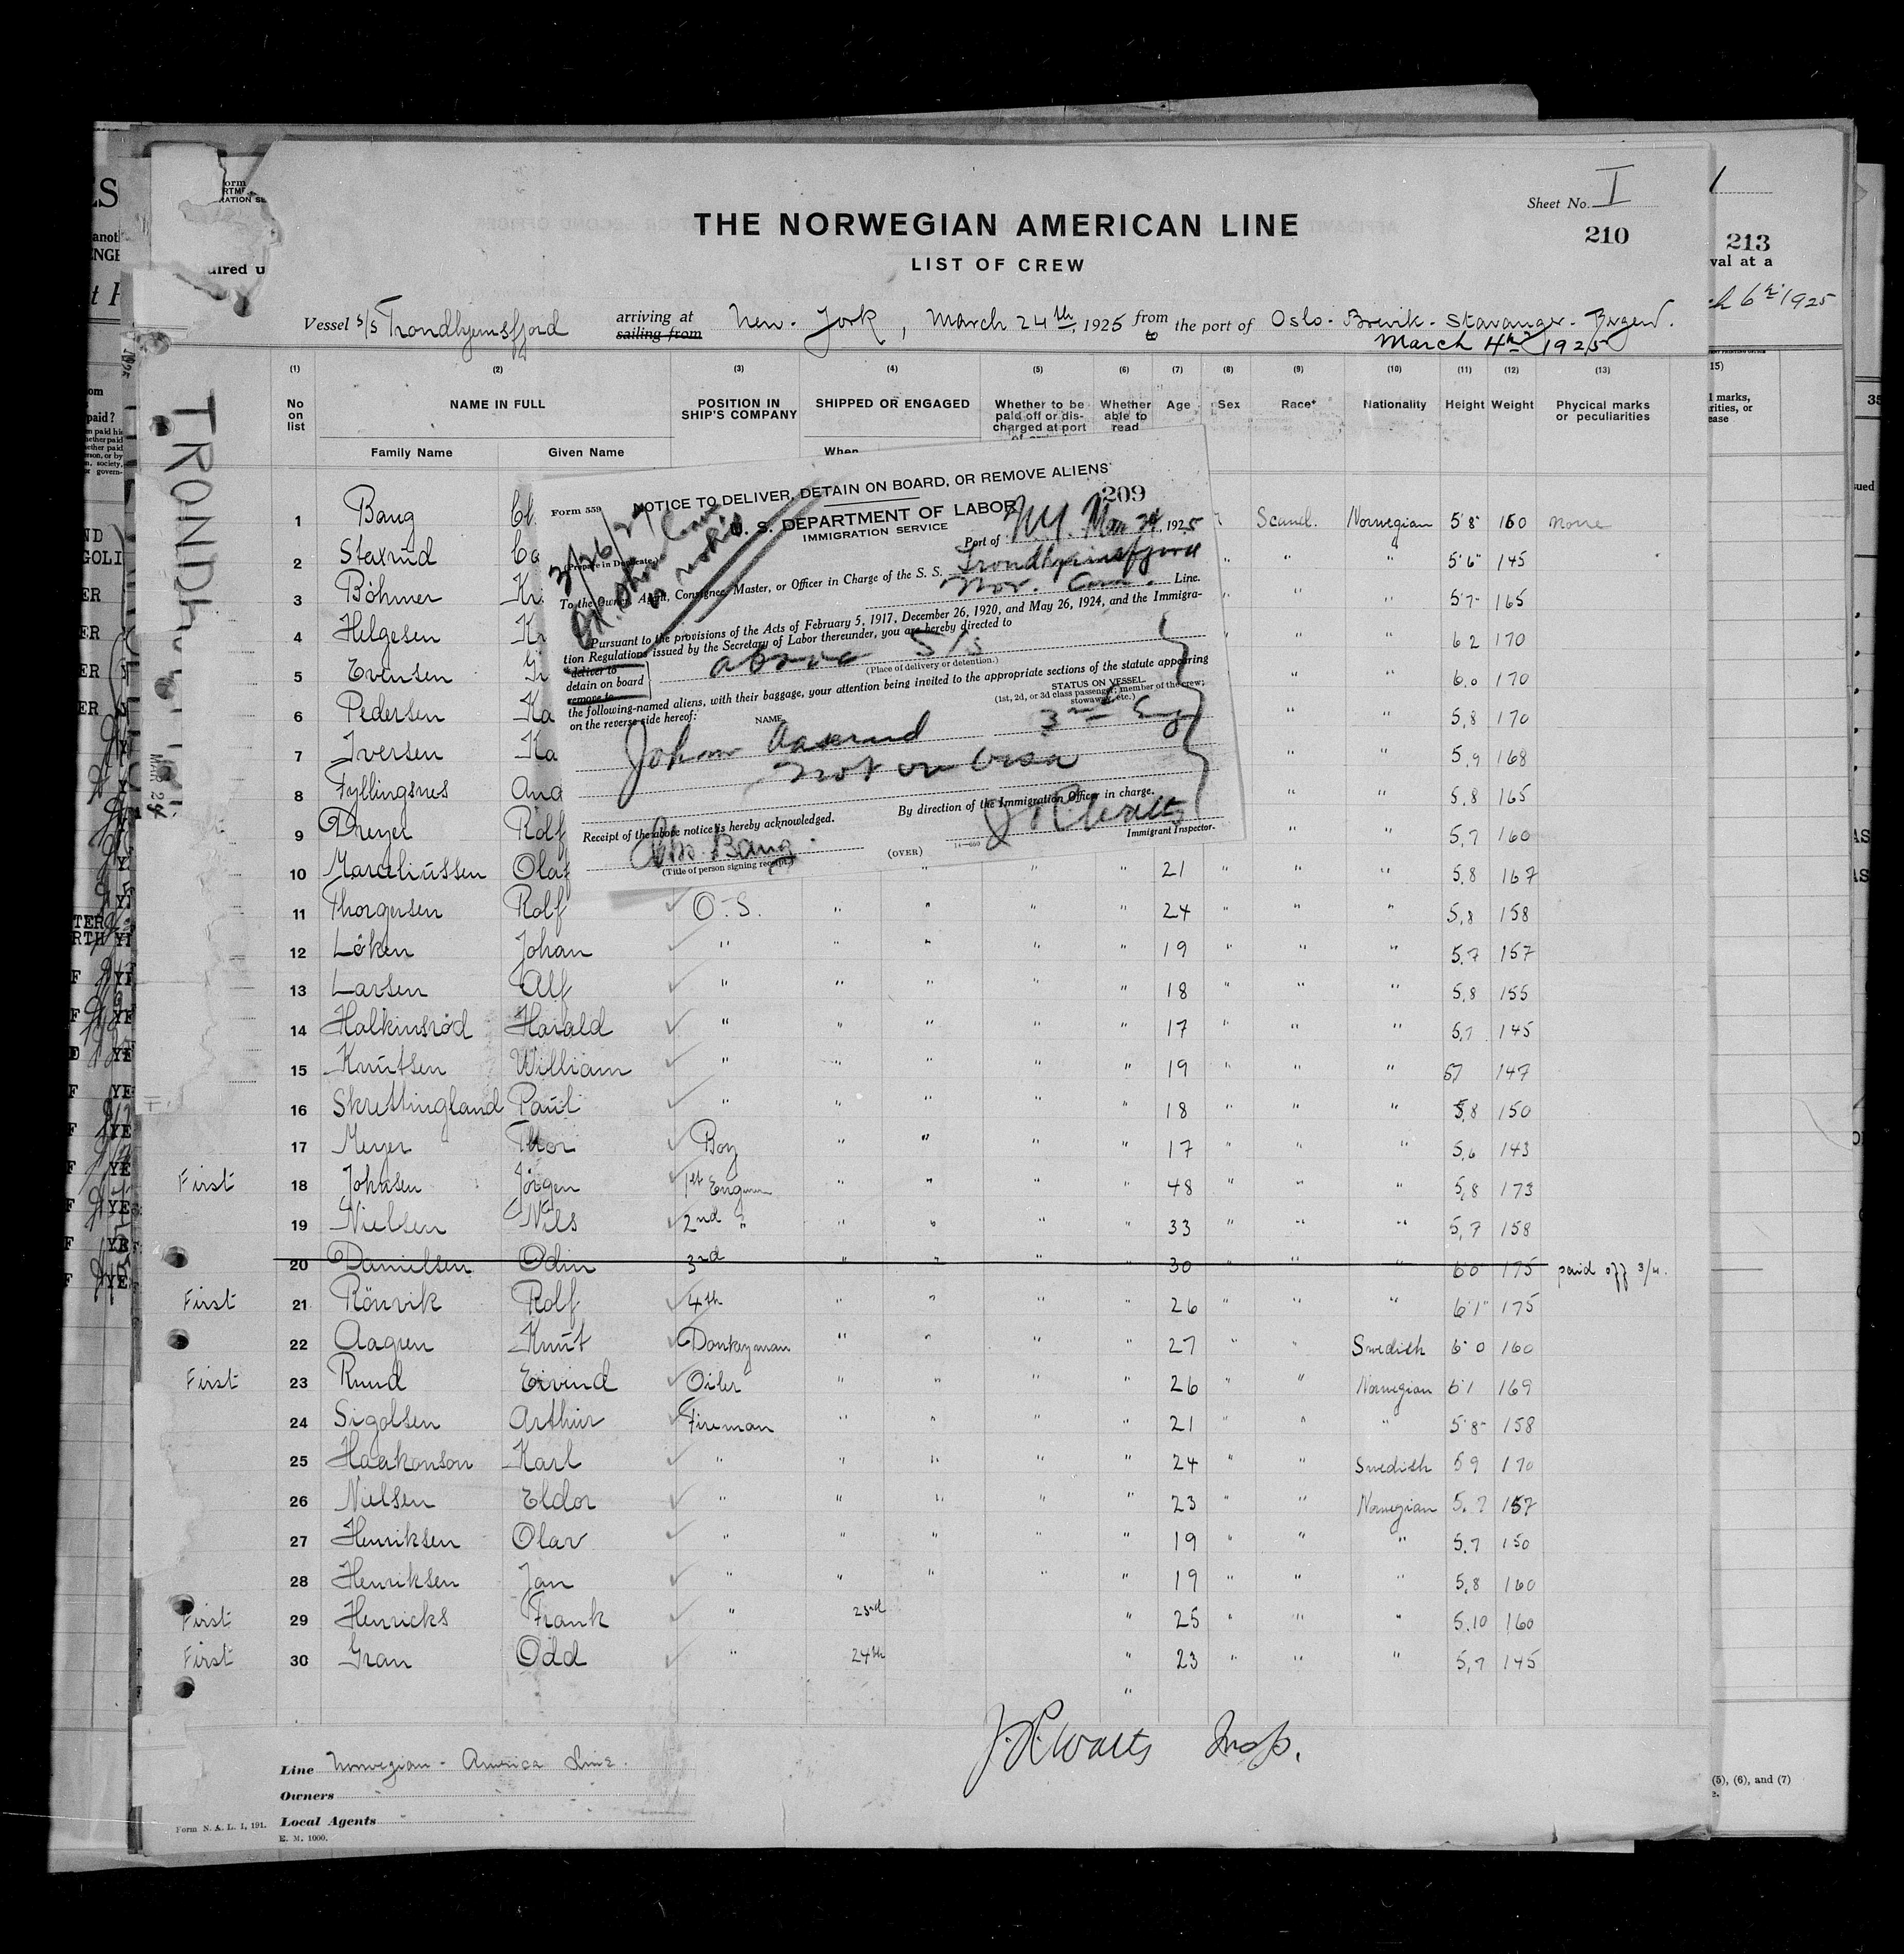 Sheet No. I
THE NORWEGIAN AMERICAN LINE
210
LIST OF CREW
Vessel S/S Trondhjemsfjord arriving at sailing from New-York, March 24th, 1925 from to the port of Oslo - Brevik - Stavanger - Bergen.
March 4th 1925
(1) (2) (3) (4) (5) (6) (7) (8) (9) (10) (11) (12) (13)
No on list NAME IN FULL POSITION IN SHIP'S COMPANY SHIPPED OR ENGAGED Whether to be paid off or discharged at port Whether able to read Age Sex Race* Nationality Height Weight Physical marks or peculiarities
Family Name Given Name When
1 Bang Scand. Norwegian 5'8 160 none
2 Staxrud " " 5'6" 145
3 Böhmer " " 5'7 165
4 Helgesen " " 6 2 170
5 Evensen " " 6.0 170
6 Pedersen " " 5,8 170
7 Iversen " " 5,9 168
8 Fyllingsnes " " 5.8 165
9 Dreyer Rolf " " 5,7 160
10 Marceliussen Olaf " " " 21 " " " 5.8 167
11 Thorgersen Rolf O.S. " " " " 24 " " " 5,8 158
12 Löken Johan " " " " " 19 " " " 5.7 157
13 Larsen Alf " " " " " 18 " " " 5,8 155
14 Halkinsröd Harald " " " " " 17 " " " 5,7 145
15 Knutsen William " " " " " 19 " " " 57 147
16 Skrettingland Paul " " " " " 18 " " " 5,8 150
17 Meyer Thor Boy " " " " 17 " " " 5,6 143
First 18 Johnsen Jörgen 1st Engineer " " " " 48 " " " 5,8 173
19 Nielsen Nils 2nd " " " " " 33 " " " 5,7 158
20 Danielsen Odin 3rd " " " " 30 " " 6'0 175 paid off 3/4.
First 21 Rönvik Rolf 4th " " " " 26 " " " 6'1" 175
22 Aagren Knut Donkeyman " " " " 27 " " Swedish 6'0 160
First 23 Ruud Eivind Oiler " " " " 26 " " Norwegian 6'1 169
24 Sigolsen Arthur Fireman " " " " 21 " " " 5'8 158
25 Haakonson Karl " " " " " 24 " " Swedish 5 9 170
26 Nielsen Eldor " " " " " 23 " " Norwegian 5.7 157
27 Henriksen Olav " " " " " 19 " " " 5.7 150
28 Henriksen Jan " " " " " 19 " " " 5,8 160
First 29 Henricks Frank " 23rd " 25 " " " 5.10 160
First 30 Gran Odd " 24th " 23 " " " 5,7 145
"
J.R. Watts Insp.
Line Norwegian - America Line.
Owners
Local Agents
Form N. A. L. I, 191.
E. M. 1000.
Form 559
NOTICE TO DELIVER, DETAIN ON BOARD, OR REMOVE ALIENS
209
U. S. DEPARTMENT OF LABOR
IMMIGRATION SERVICE
(Prepare in Duplicate)
Port of N.Y. Mar 24, 1925
To the Owner, Agent, Consignee, Master, or Officer in Charge of the S. S. Trondhjemsfjord
Line.
Pursuant to the provisions of the Acts of February 5, 1917, December 26, 1920, and May 26, 1924, and the Immigra-
tion Regulations issued by the Secretary of Labor thereunder, you are hereby directed to
*deliver to
detain on board
remove to
above S/S
(Place of delivery or detention.)
the following-named aliens, with their baggage, your attention being invited to the appropriate sections of the statute appearing
on the reverse side hereof:
NAME
STATUS ON VESSEL
(1st, 2d, or 3d class passenger; member of the crew; stowaway, etc.)
John Aaserud 3rd Eng
not on visa
By direction of the Immigration Officer in charge.
Receipt of the above notice is hereby acknowledged.
J R Watts
Immigrant Inspector.
Chr. Bang.
(Title of person signing receipt.)
(OVER)
TRONDH
213
val at a
6th 1925
(5), (6), and (7)